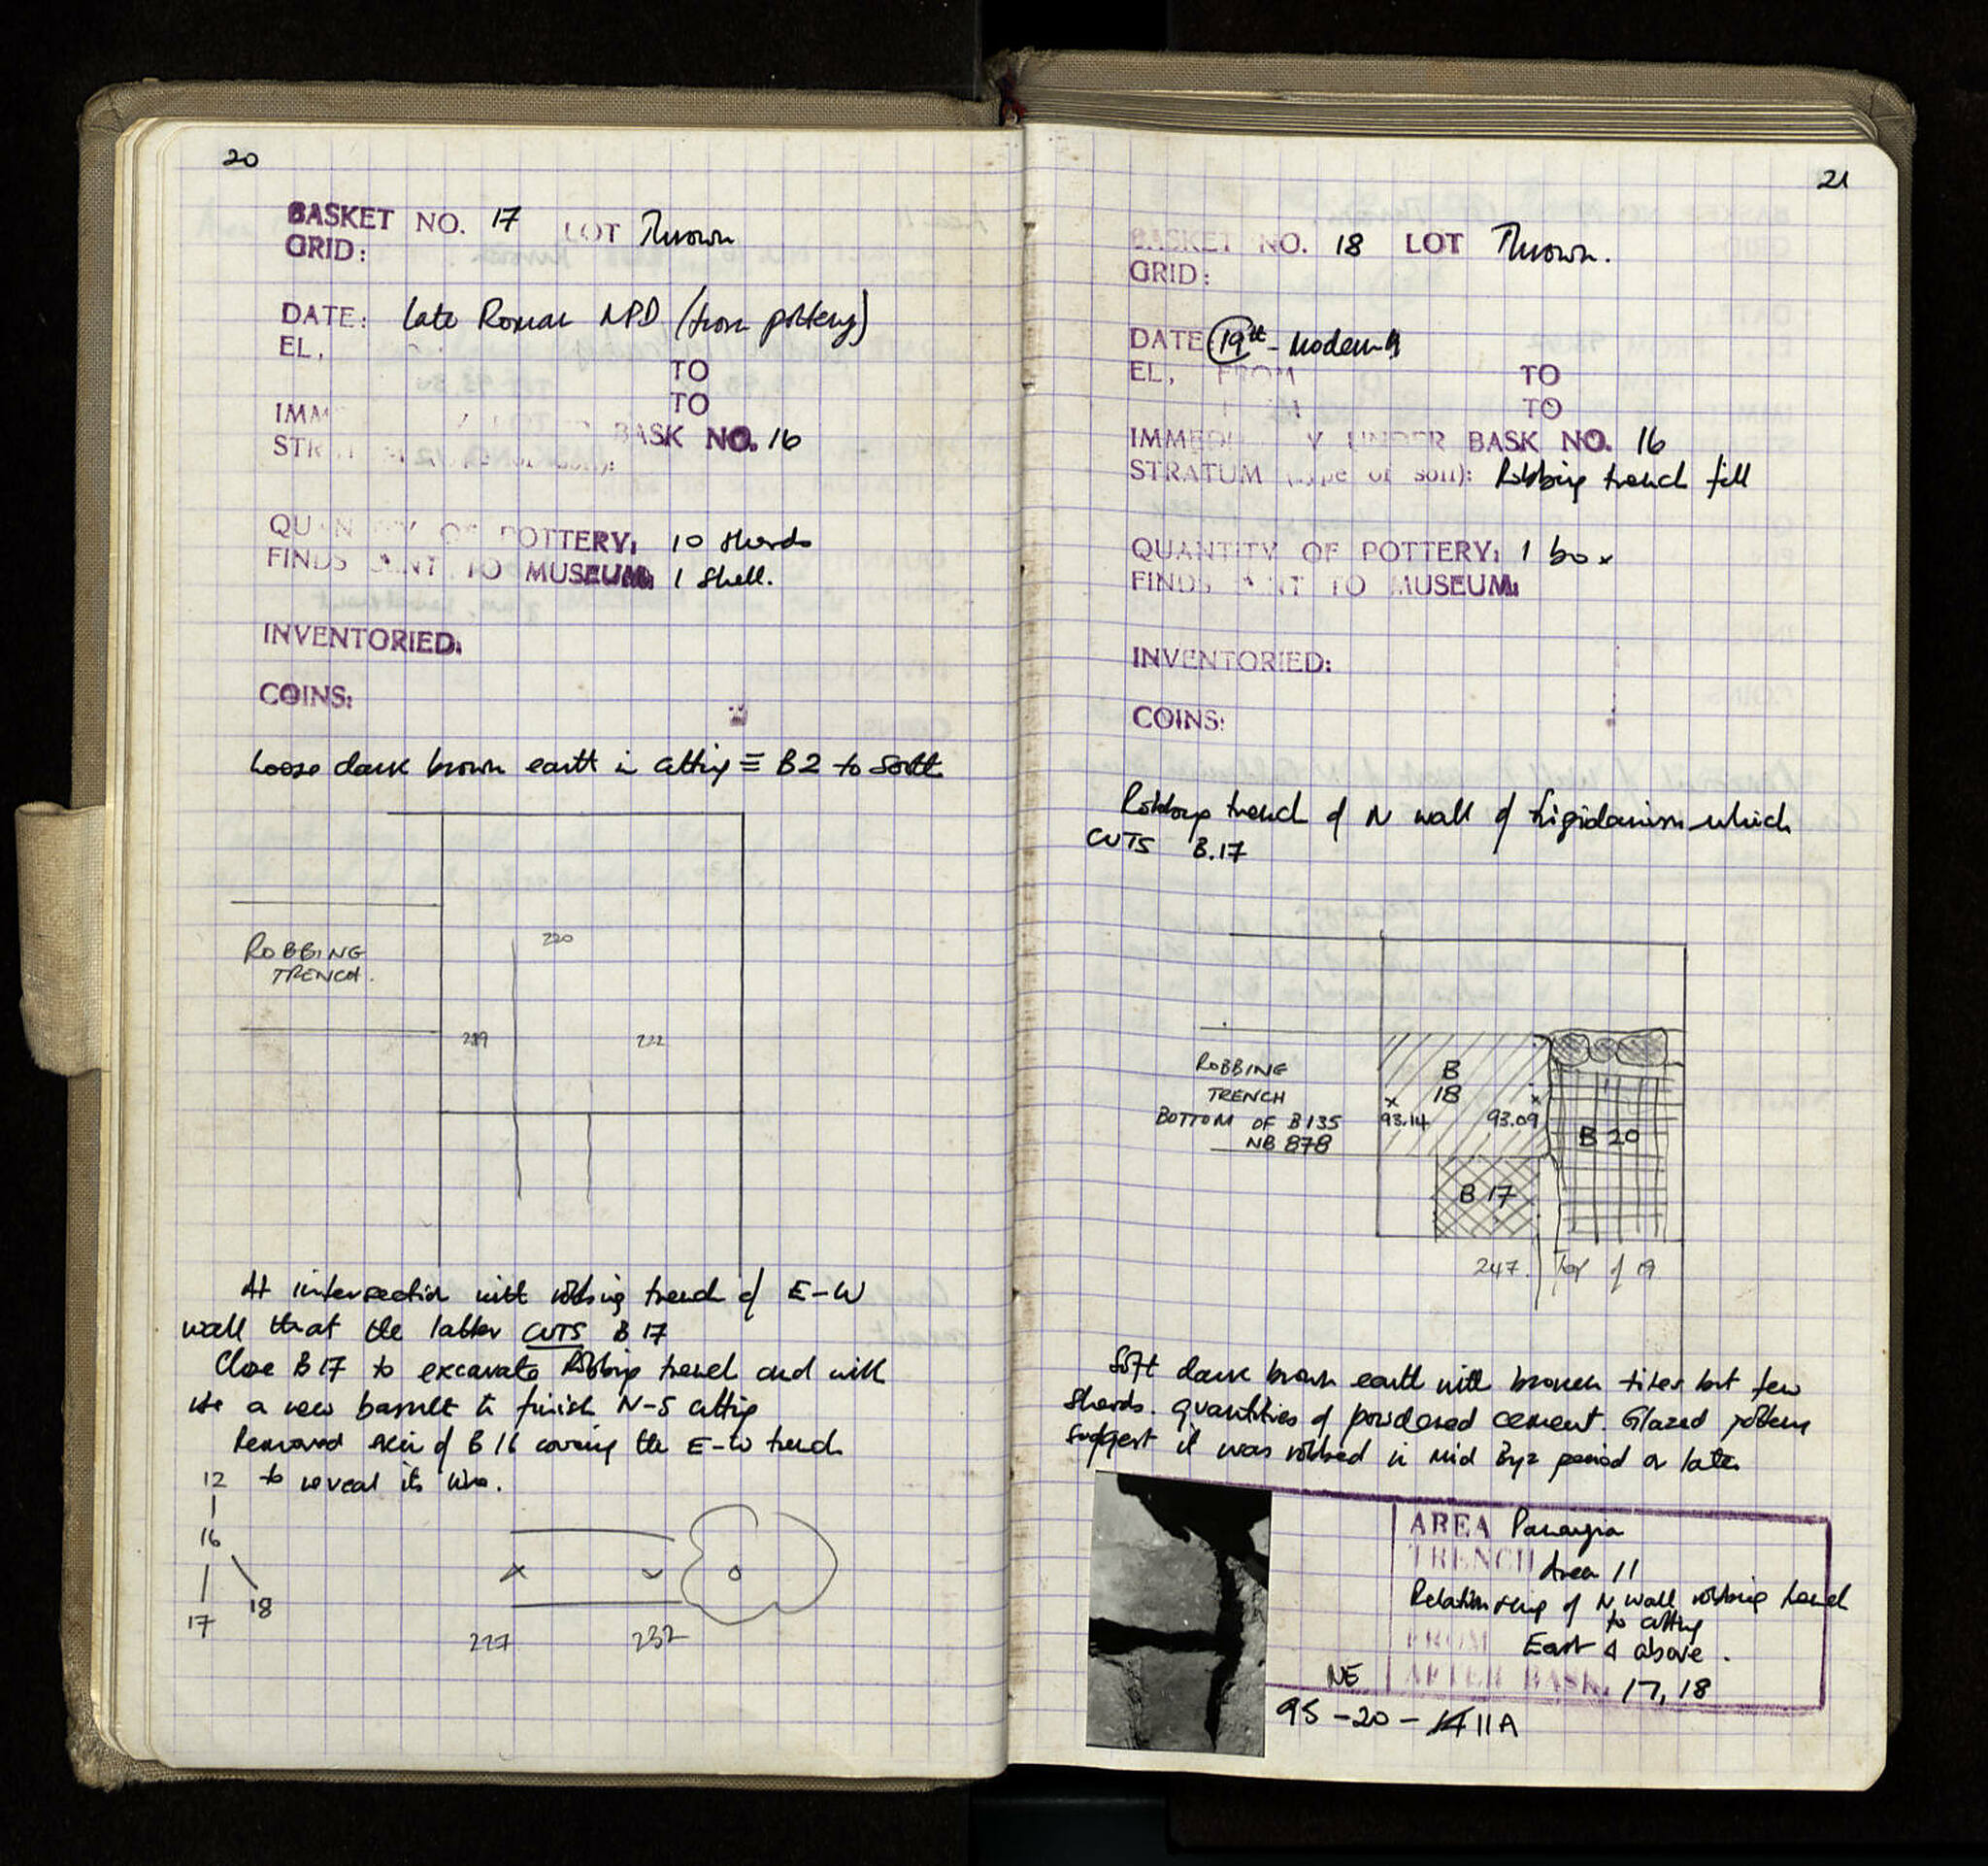 20
BASKET NO. 17 LOT Thrown
GRID:
DATE: Late Roman NPD (from pottery)
EL,
TO
TO
IMM BASK NO. 16
STR
QUANTITY OF POTTERY: 10 sherds
FINDS SENT TO MUSEUM: 1 shell.
INVENTORIED:
COINS:
Loose dark brown earth in cutting ≡ B2 to South
220
ROBBING
TRENCH.
219 222
At intersection with robbing trench of E-W
wall that the latter CUTS B 17
Close B 17 to excavate Robbing trench and will
use a new basket to finish N-S cutting
Removed skin of B 16 covering the E-W trench
to reveal its line.
12
16
17 18
227 232
21
BASKET NO. 18 LOT Thrown.
GRID:
DATE 19th - Modern
EL, FROM TO
TO
IMMEDIATELY UNDER BASK NO. 16
STRATUM (type of soil): Robbing trench fill
QUANTITY OF POTTERY: 1 box
FINDS SENT TO MUSEUM:
INVENTORIED:
COINS:
Robbing trench of N wall of frigidarium which
CUTS B.17
ROBBING
TRENCH
BOTTOM OF B135
NB 878
B
18
93.14 93.09
B 20
B 17
247. Top of 19
Soft dark brown earth with broken tiles but few
sherds. quantities of powdered cement. Glazed pottery
suggest it was robbed in mid Byz period or later
AREA Panayia
TRENCH Area 11
Relationship of N wall robbing trench
to cutting
FROM East & above.
NE AFTER BASK. 17, 18
95-20-11A